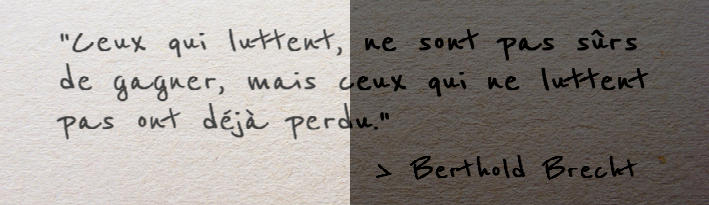 "Ceux qui luttent, ne sont pas sûrs
de gagner, mais ceux qui ne luttent
pas ont déjà perdu."
> Berthold Brecht